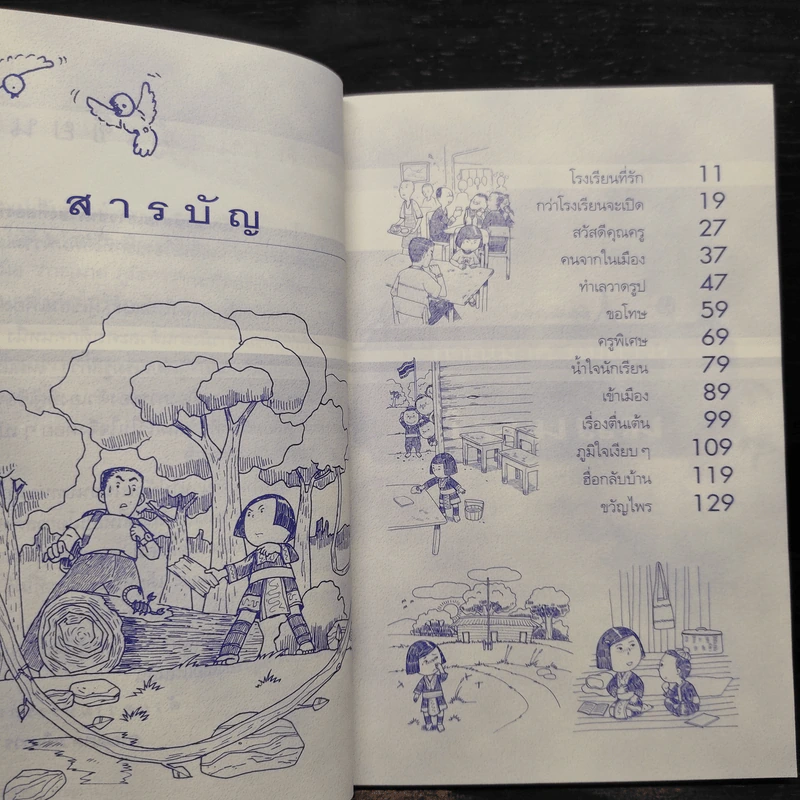 สารบัญ
โรงเรียนที่รัก 11
กว่าโรงเรียนจะเปิด 19
สวัสดีคุณครู 27
คนจากในเมือง 37
ทำเลวาดรูป 47
ขอโทษ 59
ครูพิเศษ 69
น้ำใจนักเรียน 79
เข้าเมือง 89
เรื่องตื่นเต้น 99
ภูมิใจเงียบ ๆ 109
ฮื่อกลับบ้าน 119
ขวัญไพร 129